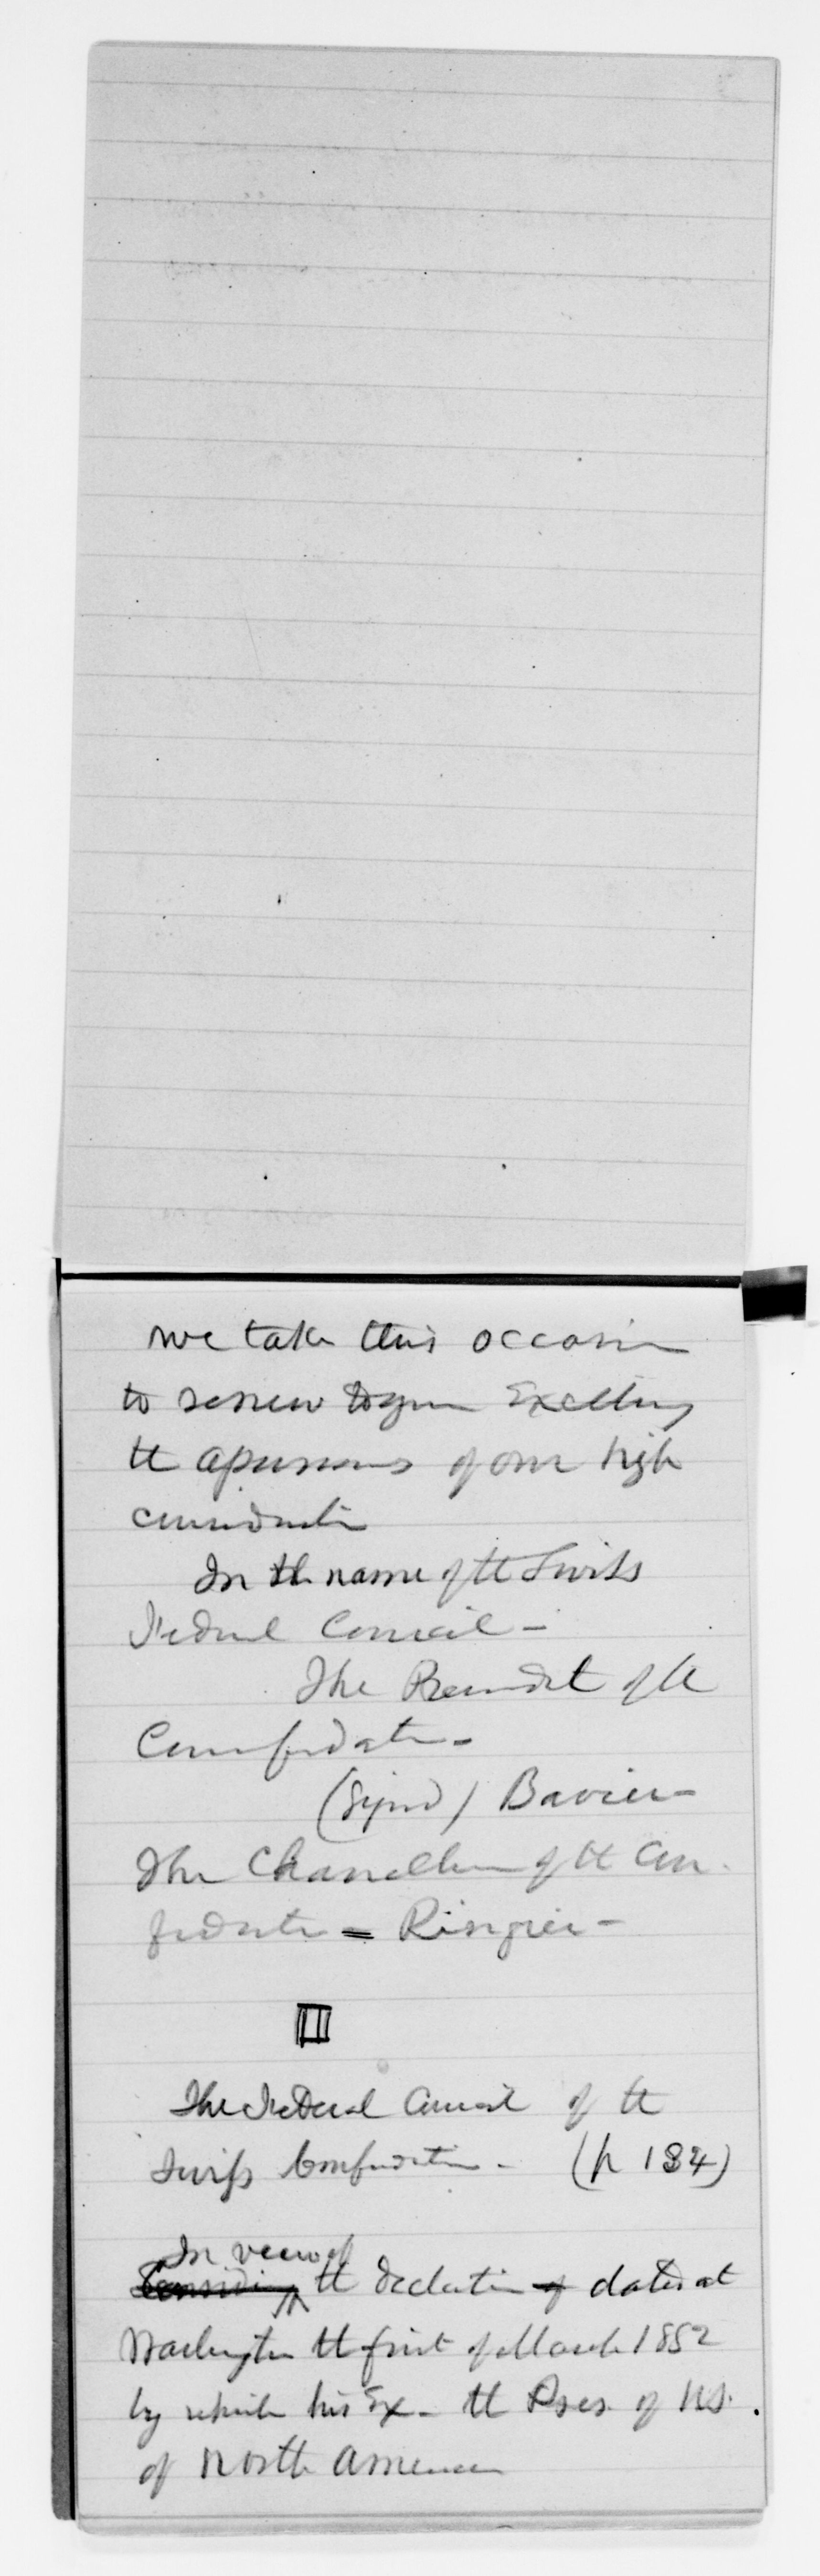 we take this occasion
to renew to your Excellency
the assurances of our high
consideration
In the name of the Swiss
Federal Council -
The President of the
Confederation -
(Signed) Bavier -
The Chancellor of the Con-
federation = Ringier -
III
The Federal Council of the
Swiss Confederation - (p 184)
In view of
Considering the declaration of dated at
Washington the first of March 1882
by which his Ex - the Pres. of U.S.
of North America